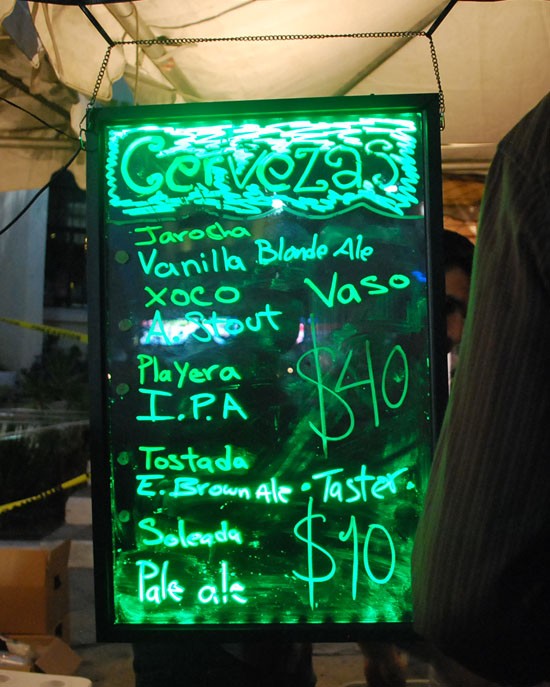 Cervezas
Jarocha
Vanilla Blonde Ale
XOCO Vaso
A. Stout
Playera $40
I.P.A
Tostada
E. Brown Ale • Taster •
Soleada $10
Pale ale